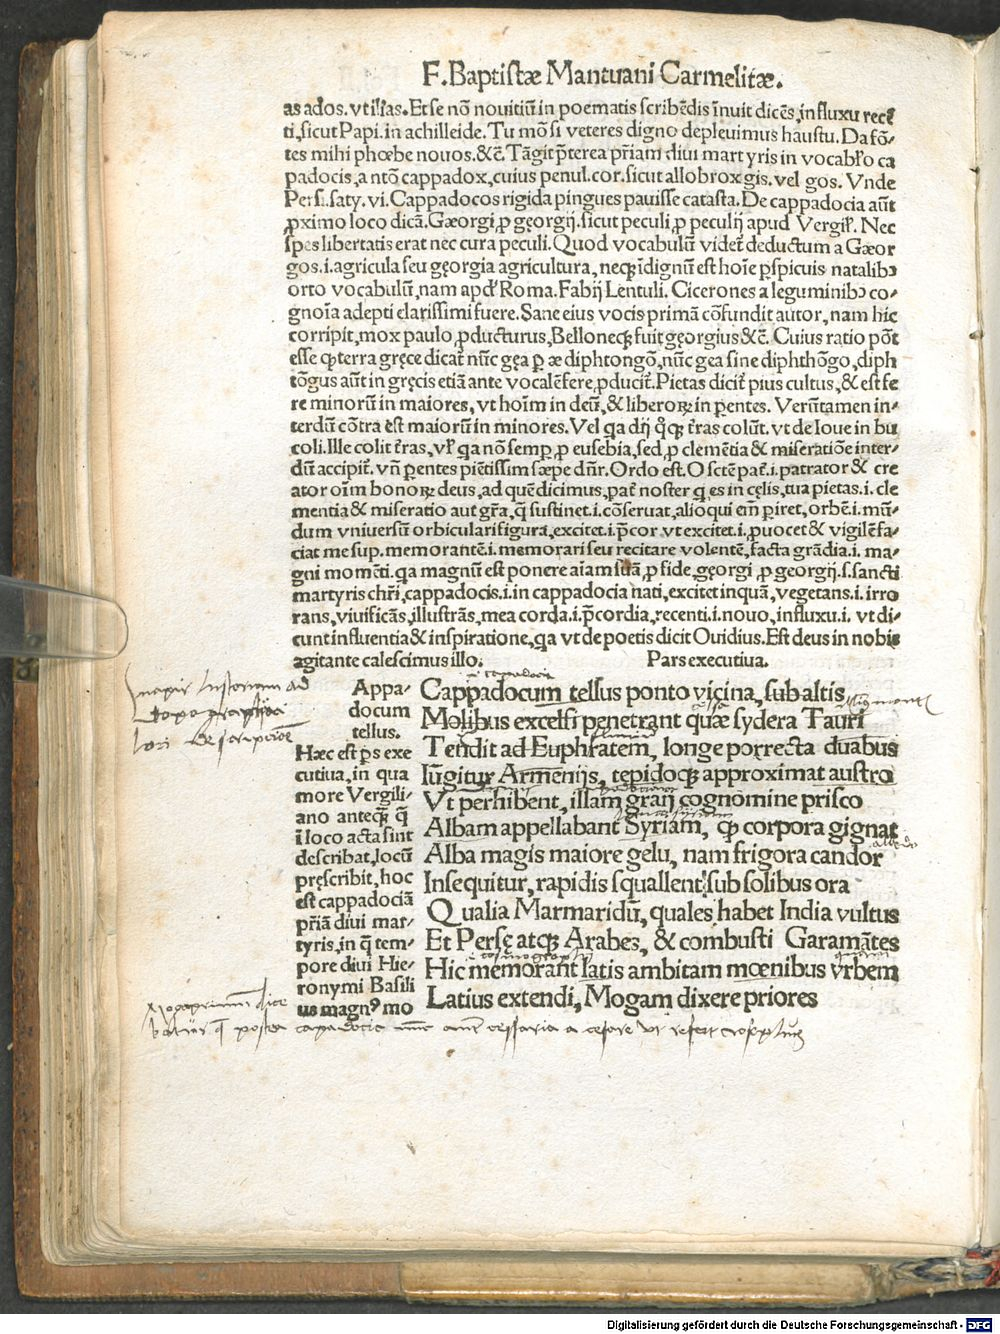 F. Baptistæ Mantuani Carmelitæ.
as ados. vt ilias. Et se nõ nouitiũ in poematis scribẽdis ĩnuit dicẽs, influxu recẽ
ti, sicut Papi. in achilleide. Tu mõ si veteres digno depleuimus haustu. Da fõ-
tes mihi phœbe nouos. &c̃. Tãgit p̃terea pr̃iam diui martyris in vocab̃ro ca
padocis, a ntõ cappadox, cuius penul. cor. sicut allobrox gis. vel gos. Vnde
Persi. saty. vi. Cappadocos rigida pingues pauisse catasta. De cappadocia aũt
ꝓximo loco dicã. Gæorgi, ꝓ georgij. sicut peculi ꝓ peculij apud Vergil̃. Nec
spes libertatis erat nec cura peculi. Quod vocabulũ videt̃ deductum a Gæor
gos. i. agricula seu georgia agricultura, neqꝫ ĩdignũ est hoĩe p̱spicuis natalibꝰ
orto vocabulũ, nam apd̃ Roma. Fabij Lentuli. Cicerones a leguminibꝰ co-
gnoĩa adepti clarissimi fuere. Sane eius vocis primã cõfundit autor, nam hic
corripit, mox paulo ꝓducturus, Belloneqꝫ fuit gęorgius &c̃. Cuius ratio põt
esse ꝙ terra gręce dicat̃ nũc gęa p̱ æ diphtongõ, nũc gea sine diphthõgo, diph
tõgus aũt in gręcis etiã ante vocalẽ fere ꝓducit̃. Pietas dicit̃ pius cultus, & est fe
re minorũ in maiores, vt hoĩm in deũ, & liberoꝝ in p̱entes. Verũtamen in-
terdũ cõtra est maiorũ in minores. Vel qa dij q̃qꝫ t̃ras colũt. vt de Ioue in bu
coli. Ille colit t̃ras, vl̃ qa nõ semp̱ ꝓ eusebia, sed ꝓ clemẽtia & miseratiõe inter-
dũ accipit̃. vñ p̱entes piẽtissim sæpe dñr. Ordo est. O sctẽ pat̃. i. patrator & cre
ator oĩm bonoꝝ deus, ad quẽ dicimus, pat̃ noster q̱ es in cęlis, tua pietas. i. cle
mentia & miseratio aut gr̃a, q̃ sustinet. i. cõseruat, alioqui em̃ p̱iret, orbẽ. i. mũ-
dum vniuersũ orbiculari figura, excitet. i. p̃cor vt excitet. i. ꝓuocet & vigilẽ fa-
ciat me sup. memorantẽ. i. memorari seu recitare volentẽ, facta grãdia. i. ma-
gni momẽti. qa magnũ est ponere aĩam suã, ꝓ fide, gęorgi, ꝓ georgij. s. sancti
martyris chr̃i, cappadocis. i. in cappadocia nati, excitet inquã, vegetans. i. irro
rans, viuificãs, illustrãs, mea corda. i. p̃cordia, recenti. i. nouo, influxu. i. vt di-
cunt influentia & inspiratione, qa vt de poetis dicit Ouidius. Est deus in nobis
agitante calescimus illo. Pars executiua.
Appa-
docum
tellus.
Hæc est p̱s exe
cutiua, in qua
more Vergili-
ano anteqꝫ q̃
ĩ loco acta sint
describat, locũ
pręscribit, hoc
est cappadociã
pr̃iã diui mar-
tyris, in q̃ tem-
pore diui Hie-
ronymi Basili
us magnꝰ mo
Cappadocum tellus ponto vicina, sub altis
Molibus excelsi penetrant quæ sydera Tauri
Tendit ad Euphratem, longe porrecta duabus
Iũgitur Armenijs, tepidoqꝫ approximat austro
Vt perhibent, illam graij cognomine prisco
Albam appellabant Syriam, ꝙ corpora gignat
Alba magis maiore gelu, nam frigora candor
Insequitur, rapidis squallent sub solibus ora
Qualia Marmaridũ, quales habet India vultus
Et Persę atqꝫ Arabes, & combusti Garamãtes
Hic memorant latis ambitam mœnibus vrbem
Latius extendi, Mogam dixere priores
Digitalisierung gefördert durch die Deutsche Forschungsgemeinschaft - DFG